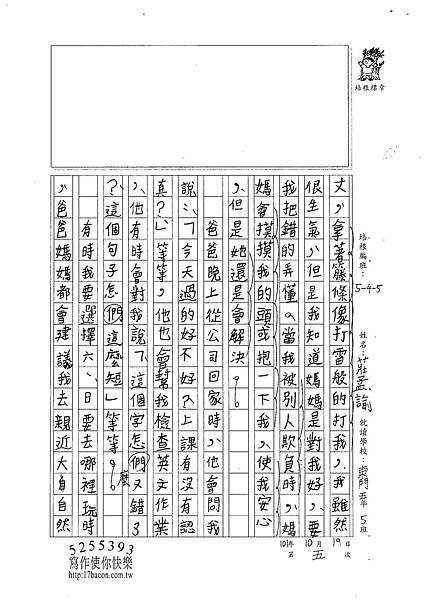 培根標章
培根編班：5-4-5 姓名：莊孟諭 就讀學校：東門 五年5班
101年10月19日
第五次
丈，拿著籐條像打雷般的打我，我雖然
很生氣，但是我知道媽媽是對我好，要
我把錯的弄懂。當我被別人欺負時，媽
媽會摸摸我的頭或抱一下我，使我安心
，但是她還是會解決。
爸爸晚上從公司回家時，他會問我
說：「今天過的好不好？上課有沒有認
真？」等等，他也會幫我檢查英文作業
，他有時會對我說「這個字怎們又錯了
？這個句子怎們這麼短」等等。
麼
有時我要選擇六、日要去哪裡玩時
，爸爸媽媽都會建議我去親近大自自然
5255393
寫作使你快樂
http://17bacon.com.tw